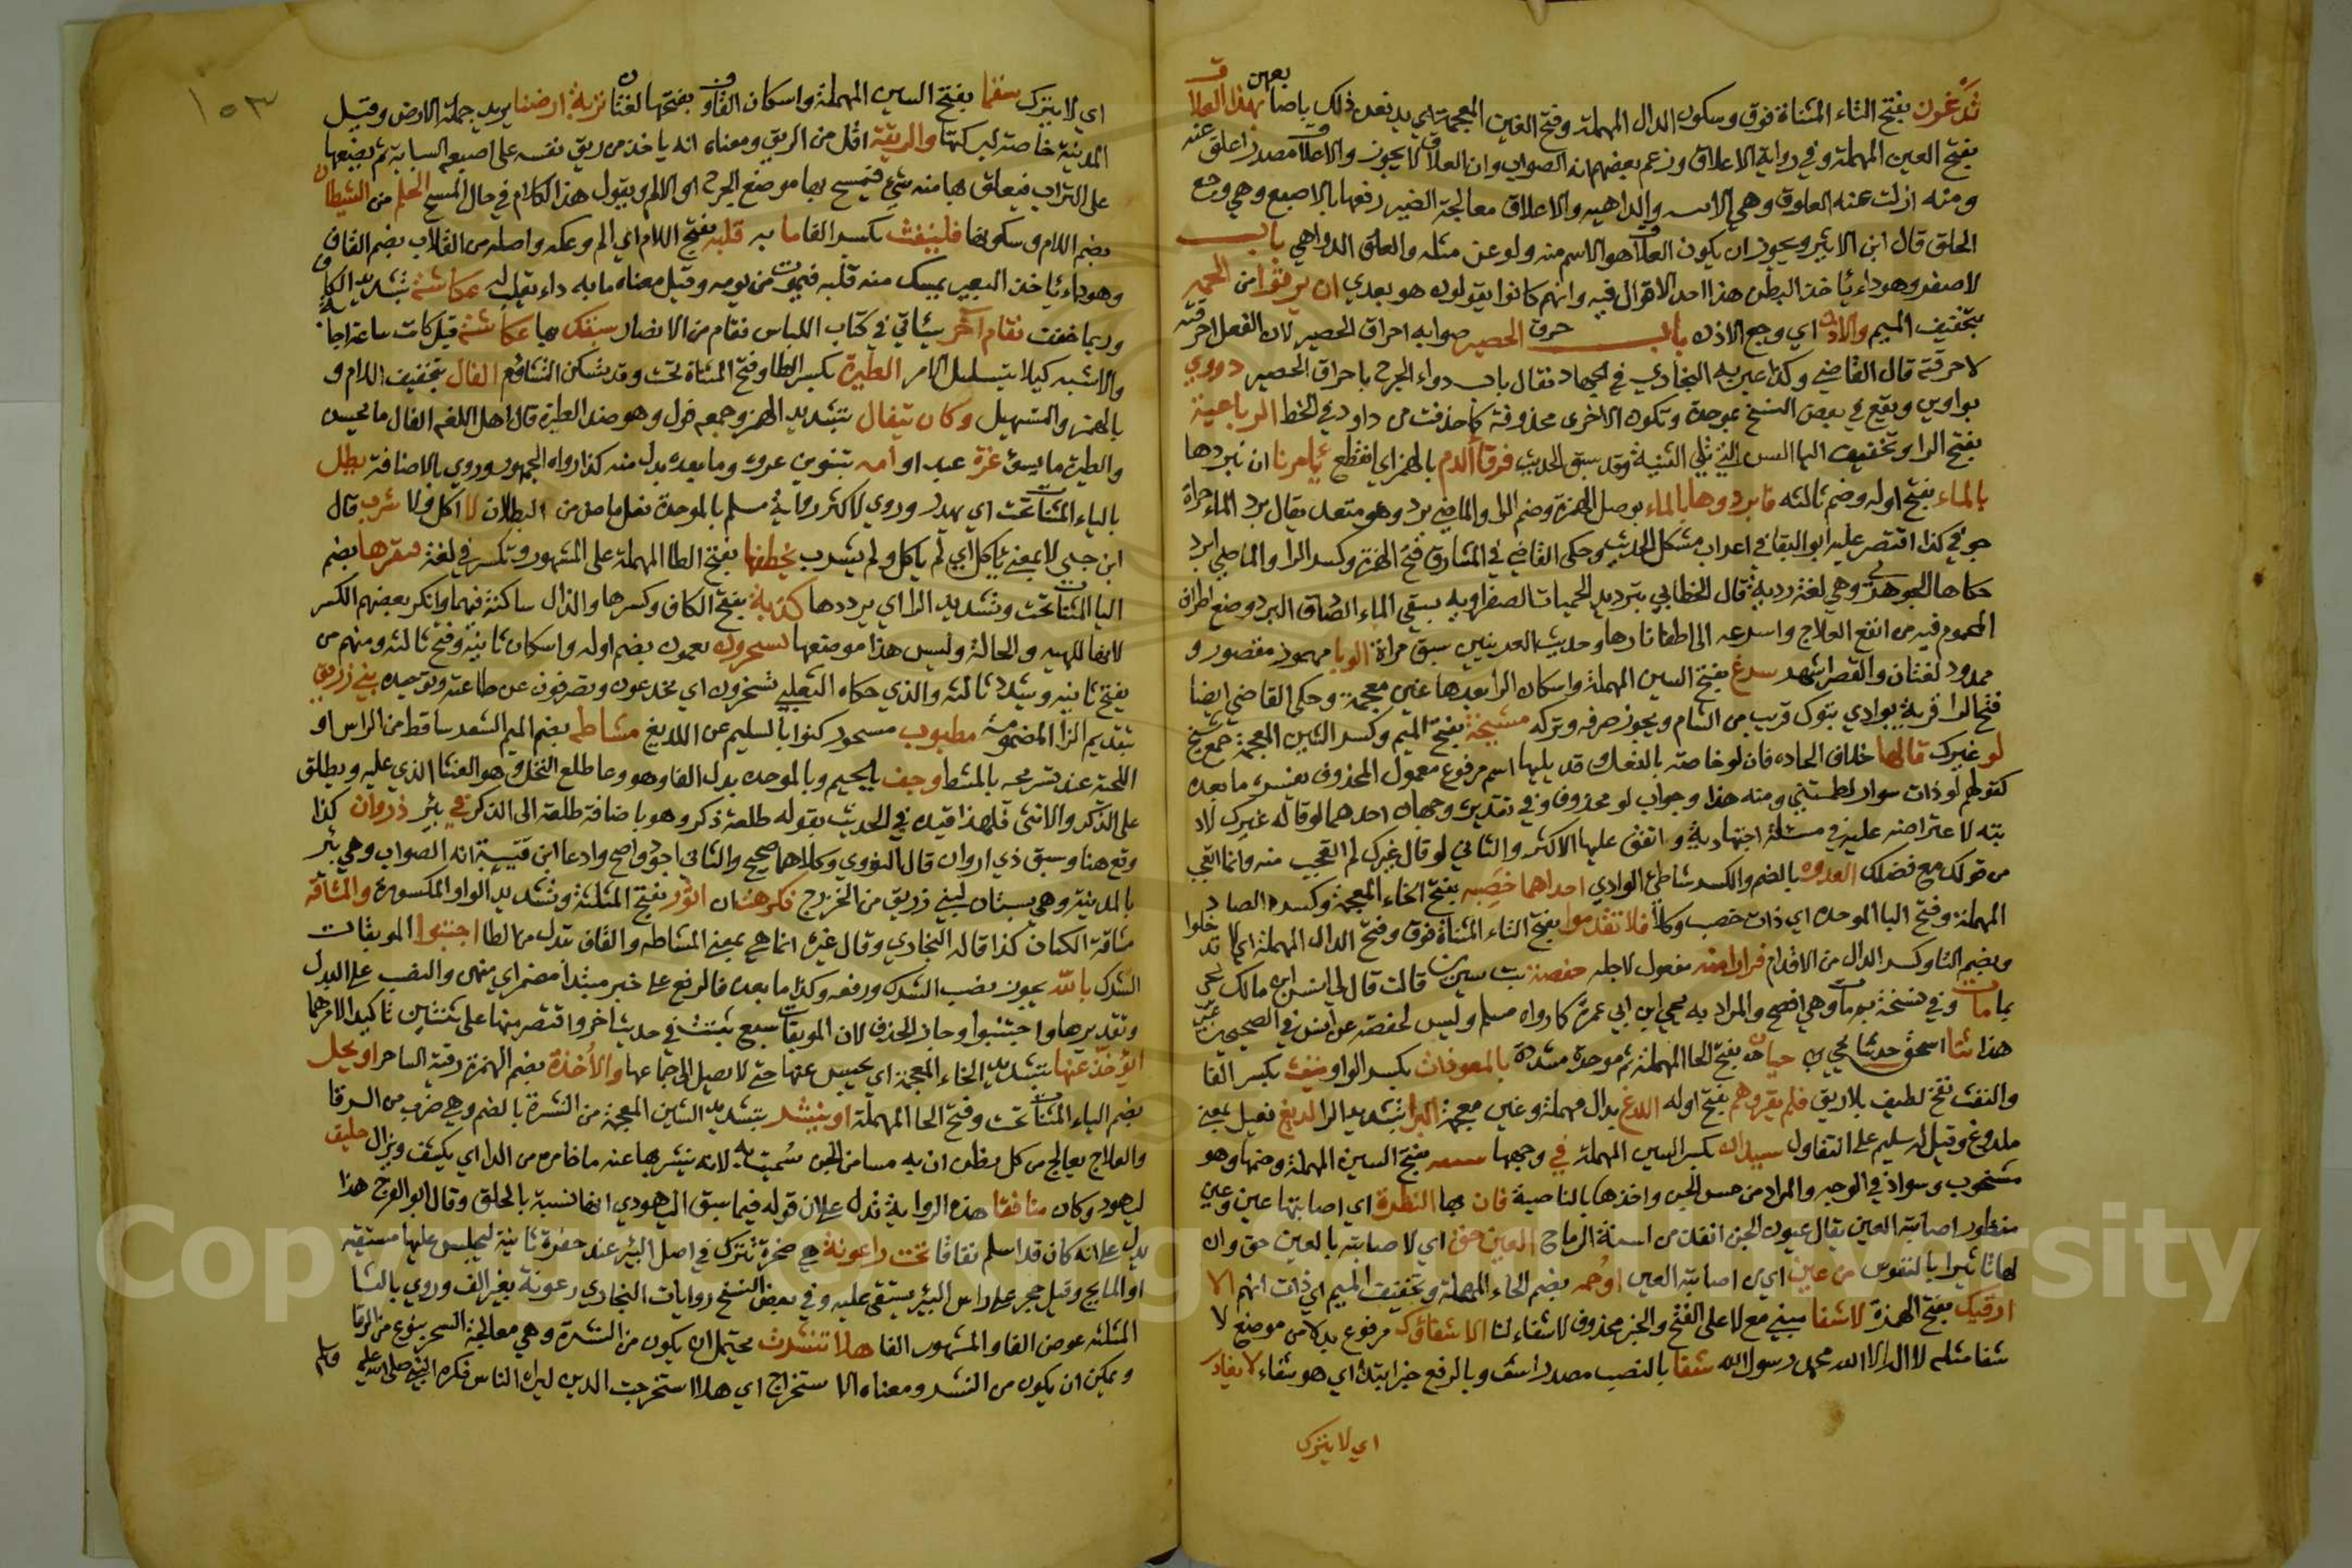 تدغرون بفتح التاء المثناة فوق وسكون الدال المهملة وفتح الغين المعجمة اي بهذا العلاق
بفتح العين المهملة وفي رواية الاعلاق وزعم بعضهم انه الصواب وان العلاق لا يجوز والاعلاق مصدر اعلق عنه
ومنه ازلت عنه العلوق وهي الافة والداهيه والاعلاق معالجة الصبي رفعها بالاصبع وهي وجع
الحلق قال ابن الاثير ويجوز ان يكون العلاق هو الاسم منه ولو عن مثله والعلق الدواهي باب
لا صفر وهو داء ياخذ البطن هذا احد الاقوال فيه وانهم كانوا يقولون هو يعدي ان يرقوا من الحمه
بتخفيف الميم والاذن اي وجع الاذن باب حرق الحصير صوابه احراق الحصير لان الفعل احرقته
لا حرقته قال القاضي وكذا عبر به البخاري في الجهاد فقال باب دواء الجرح باحراق الحصير دووي
بواوين ويقع في بعض النسخ بموحدة وتكون الاخرى محذوفة كما حذفت من داود في الخط الرباعية
بفتح الرا وتخفيف اليا السن التي تلي الثنية وقد سبق الحديث فرقأ الدم بالهمز اي انقطع يأمرنا ان نبردها
بالماء بفتح اوله وضم ثالثه فابردوها بالماء بوصل الهمزة وضم الرا والماضي برد وهو متعد يقال برد الماء حرارة
جوفي كذا اقتصر عليه ابو البقا في اعراب مشكل الحديث وحكى القاضي في المشارق فتح الهمزة وكسر الرا والماضي ابرد
حكاها الجوهري وهي لغة ردية قال الخطابي تبريد الحميات الصفراويه بسقي الماء الصادق البرد ووضع اطراف
المحموم فيه من انفع العلاج واسرعه الى اطفا نارها وحديث العرنيين سبق مرات الوبا مهموز مقصور و
ممدود لغتان والقصر اشهر سرغ بفتح السين المهملة واسكان الرا بعدها غين معجمة وحكى القاضي ايضا
فتح الرا قرية بوادي تبوك قريب من الشام ويجوز صرفه وتركه مشيخة بفتح الميم وكسر الشين المعجمة جمع شيخ
لو غيرك قالها خلاف الجاده فان لو خاصة بالفعل وقد يليها اسم مرفوع معمول المحذوف يفسره ما بعده
كقولهم لو ذات سوار لطمتني ومنه هذا وجواب لو محذوف وفي تقديره وجهان احدهما لو قاله غيرك لاد
بته لاعتراضه علي في مسئلة اجتهادية واتفق عليها الاكثر والثاني لو قال غيرك لم اتعجب منه وانما اتعجب
من قولك مع فضلك العدوه بالضم والكسر شاطئ الوادي احداهما خصبه بفتح الخاء المعجمة وكسر الصاد
المهملة وفتح البا الموحده اي ذات خصب وكلأ فلا تقدموا بفتح التاء المثناة فوق وفتح الدال المهملة اي لا تدخلوا
وبضم التا وكسر الدال من الاقدام فرارا منه مفعول لاجله حفصة بنت سيرين قالت قال لي انس بن مالك يحيى
بما مات وفي نسخة بم مات وهي افصح والمراد به يحيى ابن ابي عمرة كما رواه مسلم وليس لحفصة عن انس في الصحيحين غير
هذا ثنا اسحق حدثنا يحيى بن حيان حبان بفتح الحا المهملة ثم موحدة مشددة بالمعوذات بكسر الواو ينفث بكسر الفا
والنفث نفخ لطيف بلا ريق فلم يقروهم بفتح اوله اللدغ بدال مهملة وغين معجمة البرا بتشديد الرا لديغ فعيل بمعنى
ملدوغ وقيل له سليم على التفاول سيدان بكسر السين المهملة في وجهها سفعه بفتح السين المهملة وضمها وهو
شحوب وسواد في الوجه والمراد من مس الجن واخذها بالناصية فان بها النظرة اي اصابتها عين وعين
منظور اصابته العين يقال عيون الجن انفذ من اسنة الرماح العين حق اي الاصابة بالعين حق وان
لها تاثيرا بالنفوس من عين اي من اصابة العين او حمه بضم الحاء المهملة وتخفيف الميم اي ذات السم الا
ارقيك بفتح الهمزة لا شفا مبني مع لا على الفتح والخبر محذوف لا شفاء لنا الا شفاؤك مرفوع بدلا من موضع لا
شفا مثله لا اله الا الله محمد رسول الله شفا بالنصب مصدر اشف وبالرفع خبر ابتداء اي هو شفاء لا يغادر
اي لا يترك
١٥٣
اي لا يترك سقما بفتح السين المهملة واسكان القاف وبفتحها لغتان تربة ارضنا يريد جملة الارض وقيل
المدينة خاصة لبركتها والريقة اقل من الريق ومعناه انه ياخذ من ريق نفسه على اصبعه السبابة ثم يضعها
على التراب فيعلق بها منه شيء فيمسح بها موضع الجرح او الالم ويقول هذا الكلام في حال المسح الحلم من الشيطان
بضم اللام وسكونها فلينفث بكسر الفا ما به قلبه بفتح اللام اي الم وعله واصله من القلاب بضم القاف
وهو داء ياخذ البعير يمسك منه قلبه فيموت من يومه وقيل معناه ما به داء يقلب له عكاشة بتشديد الكاف
وربما خففت فقام اخر سياتي في كتاب اللباس فقام من الانصار سبقك بها عكاشة قيل كانت ساعة اجابة
والاشبه كيلا يتسلسل الامر الطيرة بكسر الطا وفتح المثناة تحت وقد تسكن الفال بتخفيف اللام و
بالهمز والتسهيل وكان يتفال بتشديد الهمز وجمعه فول وهو ضد الطيرة قال اهل اللغه الفال ما يحسن
والطيره ما يسوء غرة عبد او امه بتنوين غره وما بعده بدل منه كذا رواه الجمهور وروي بالاضافة يطل
بالياء المثناة تحت اي يهدر وروي لاكثر رواية مسلم بالموحدة فعل ماض من البطلان لا اكل ولا شرب قال
ابن جني لا بمعنى ياكل اي لم ياكل ولم يشرب يخطفها بفتح الطا المهملة على المشهور وتكسر في لغة فيقرها بضم
اليا المثناة تحت وتشديد الرا اي يرددها كذبة بفتح الكاف وكسرها والذال ساكنة فيهما وانكر بعضهم الكسر
لانها للهيه والحالة وليس هذا موضعها تسحرون تعمون بضم اوله واسكان ثانيه وفتح ثالثه ومنهم من
يفتح ثانيه ويشدد ثالثه والذي حكاه الثعلبي تسحرون اي تخدعون وتصرفون عن طاعته وتوحيده بني زريق
بتقديم الزا المضمومة مطبوب مسحور كنوا بالسليم عن اللديغ مشاطه بضم الميم الشعر ساقط من الراس او
اللحية عند تسريحه بالمشط وجف بالجيم وبالموحده بدل الفا وهو وعا طلع النخل وهو الغشا الذي عليه ويطلق
على الذكر والانثى فلهذا قيده في الحديث بقوله طلعة ذكر وهو باضافة طلعة الى الذكر في بئر ذروان كذا
وقع هنا وسبق ذي اروان قال النووي وكلاهما صحيح والثاني اجود واصح وادعا ابن قتيبة انه الصواب وهي بئر
بالمدينة وهي بستان لبني زريق من الخزرج فكرهت ان اثور بفتح المثلثة وتشديد الواو المكسورة والمشاقة
مشاقة الكتان كذا قاله البخاري وقال غيره انما هي بمعنى المشاطه والقاف تبدل من الطا اجتنبوا الموبقات
الشرك بالله يجوز نصب الشرك ورفعه وكذا ما بعده فالرفع على خبر مبتدأ مضمر اي منهن والنصب على البدل
وتقديرها واجتنبوا وجاز الحذف لان الموبقات سبع ثبتت في حديث اخر واقتصر منها على ثنتين تاكيدا لامرهما
ايؤخذ عنها بتشديد الخاء المعجمة اي يحبس عنها حتى لا يصل الى جماعها والاخذة بضم الهمزة رقية الساحر او يحل
بضم الياء المثناة تحت وفتح الحا المهملة او ينشر بتشديد الشين المعجمة من النشرة بالضم وهي ضرب من الرقا
والعلاج يعالج من كل يظن ان به مسا من الجن سميت به لانه ينشر بها عنه ما خامره من الدا اي يكشف ويزال حليف
ليهود وكان منافقا هذه الرواية تدل على ان قوله فيما سبق اليهودي انها نسبة بالحلق وقال ابو الفرج هذا
يدل على انه كان قد اسلم نفاقا تحت راعونة هي صخرة تترك في اصل البئر عند حفره ثابتة ليجلس عليها مستقيه
او المايح وقيل حجر على راس البئر يستقى عليه وفي بعض النسخ روايات البخاري رعونة بغير الف وروي بالثا
المثلثه عوض الفا والمشهور الفا هلا تنشرت يحتمل ان يكون من النشرة وهي معالجة السحر بنوع من الرقا
ويمكن ان يكون من النشر ومعناه الاستخراج اي هلا استخرجت الدين ليراه الناس فكره النبي صلى الله عليه وسلم
Copyright © King Saud University